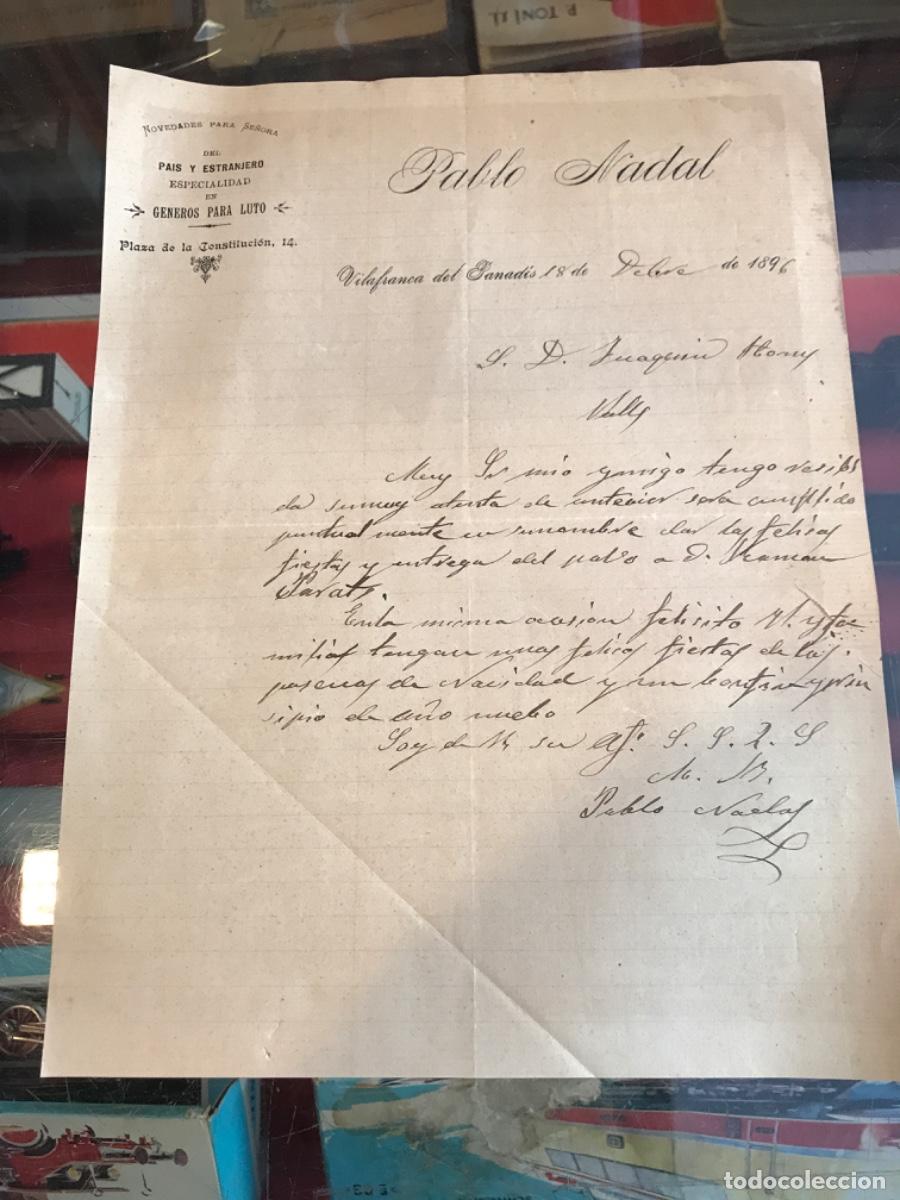 P. TONÍ LL.
NOVEDADES PARA SEÑORA
DEL
PAIS Y ESTRANJERO
ESPECIALIDAD
EN
GENEROS PARA LUTO
Plaza de la Constitución, 14.
Pablo Nadal
Vilafranca del Panadés 18 de Dbre de 1896
S. D. Juaquin
Valls
Muy Sr mio y migo tengo resibi
da sumuy atenta de anterior sera cumplido
puntualmente en sunombre dar las felises
fiestas y entrega del pabo a D. Ramon
En la misma ocasion felisito V. y fa
milias tengan unas felises fiestas de las
pascuas de Navidad y prin
sipio de año nuebo
Soy de V. su af. S. S. Q. S
M. B.
Pablo Nadal
todocoleccion